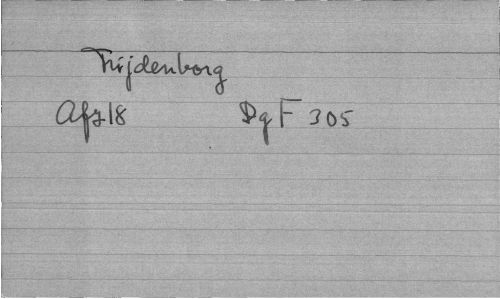 Frijdenborg
Afz18 DgF 305